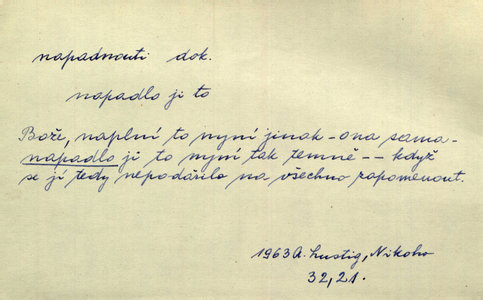 napadnouti dok.
napadlo ji to
Bože, naplní to nyní jinak – ona sama –
napadlo ji to nyní tak temně – – když
se jí tedy nepodařilo na všechno zapomenout.
1963 A. Lustig, Nikoho
32, 21.